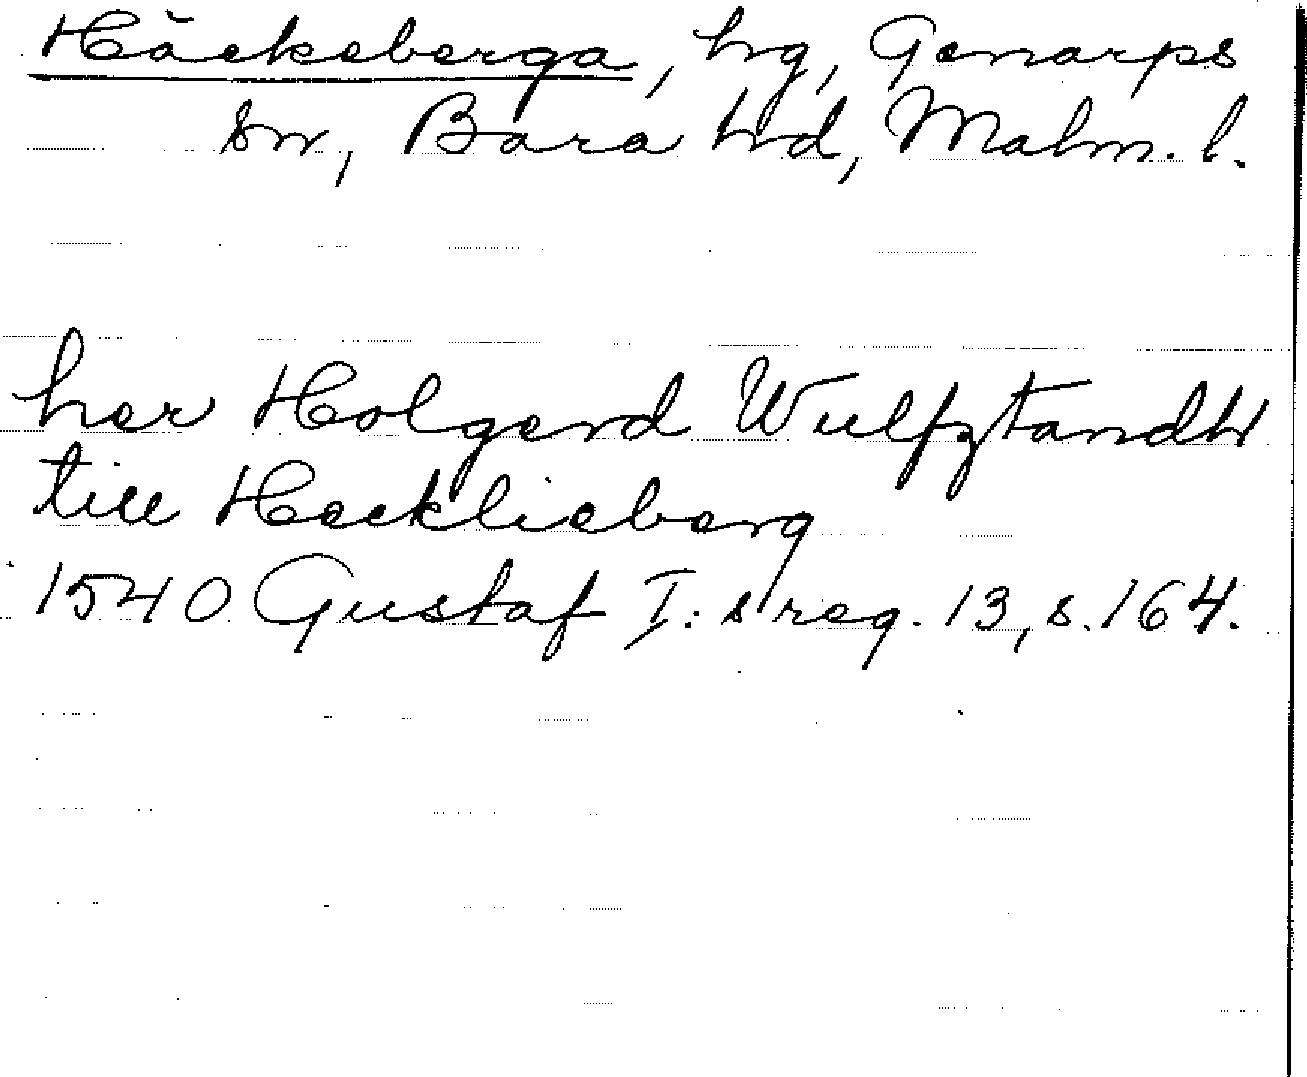 Häckeberga, hg, Genarps
sn, Bara hd, Malm. l.
her Holgerd Wulfztandh
till Hecklieberg
1540 Gustaf I:s reg. 13, s. 164.